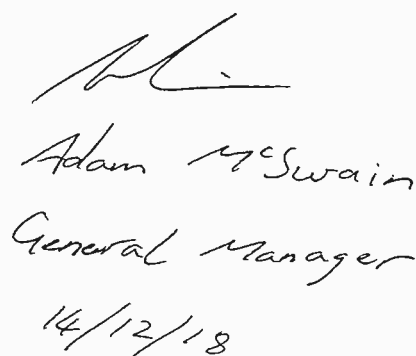 Adam McSwain
General Manager
14/12/18